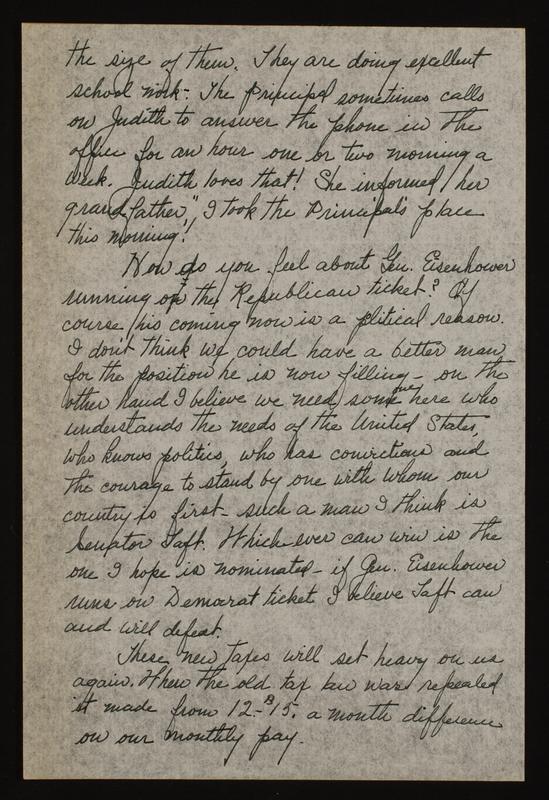 the size of them. They are doing excellent
school work - The principal sometimes calls
on Judith to answer the phone in the
office for an hour one or two morning a
week. Judith loves that! She informed her
grandfather, "I took the Principal's place
this morning!"
How do you feel about Gen. Eisenhower
running on the Republican ticket? Of
course his coming now is a political reason.
I don't think we could have a better man
for the position he is now filling - on the
other hand I believe we need some one here who
understands the needs of the United States,
who knows politics, who has convictions and
the courage to stand by one with whom our
country is first - such a man I think is
Senator Taft. Which ever can win is the
one I hope is nominated - if Gen. Eisenhower
runs on Democrat ticket I believe Taft can
and will defeat.
These new taxes will set heavy on us
again. When the old tax law was repealed
it made from 12.- 15. a month difference
on our monthly pay.